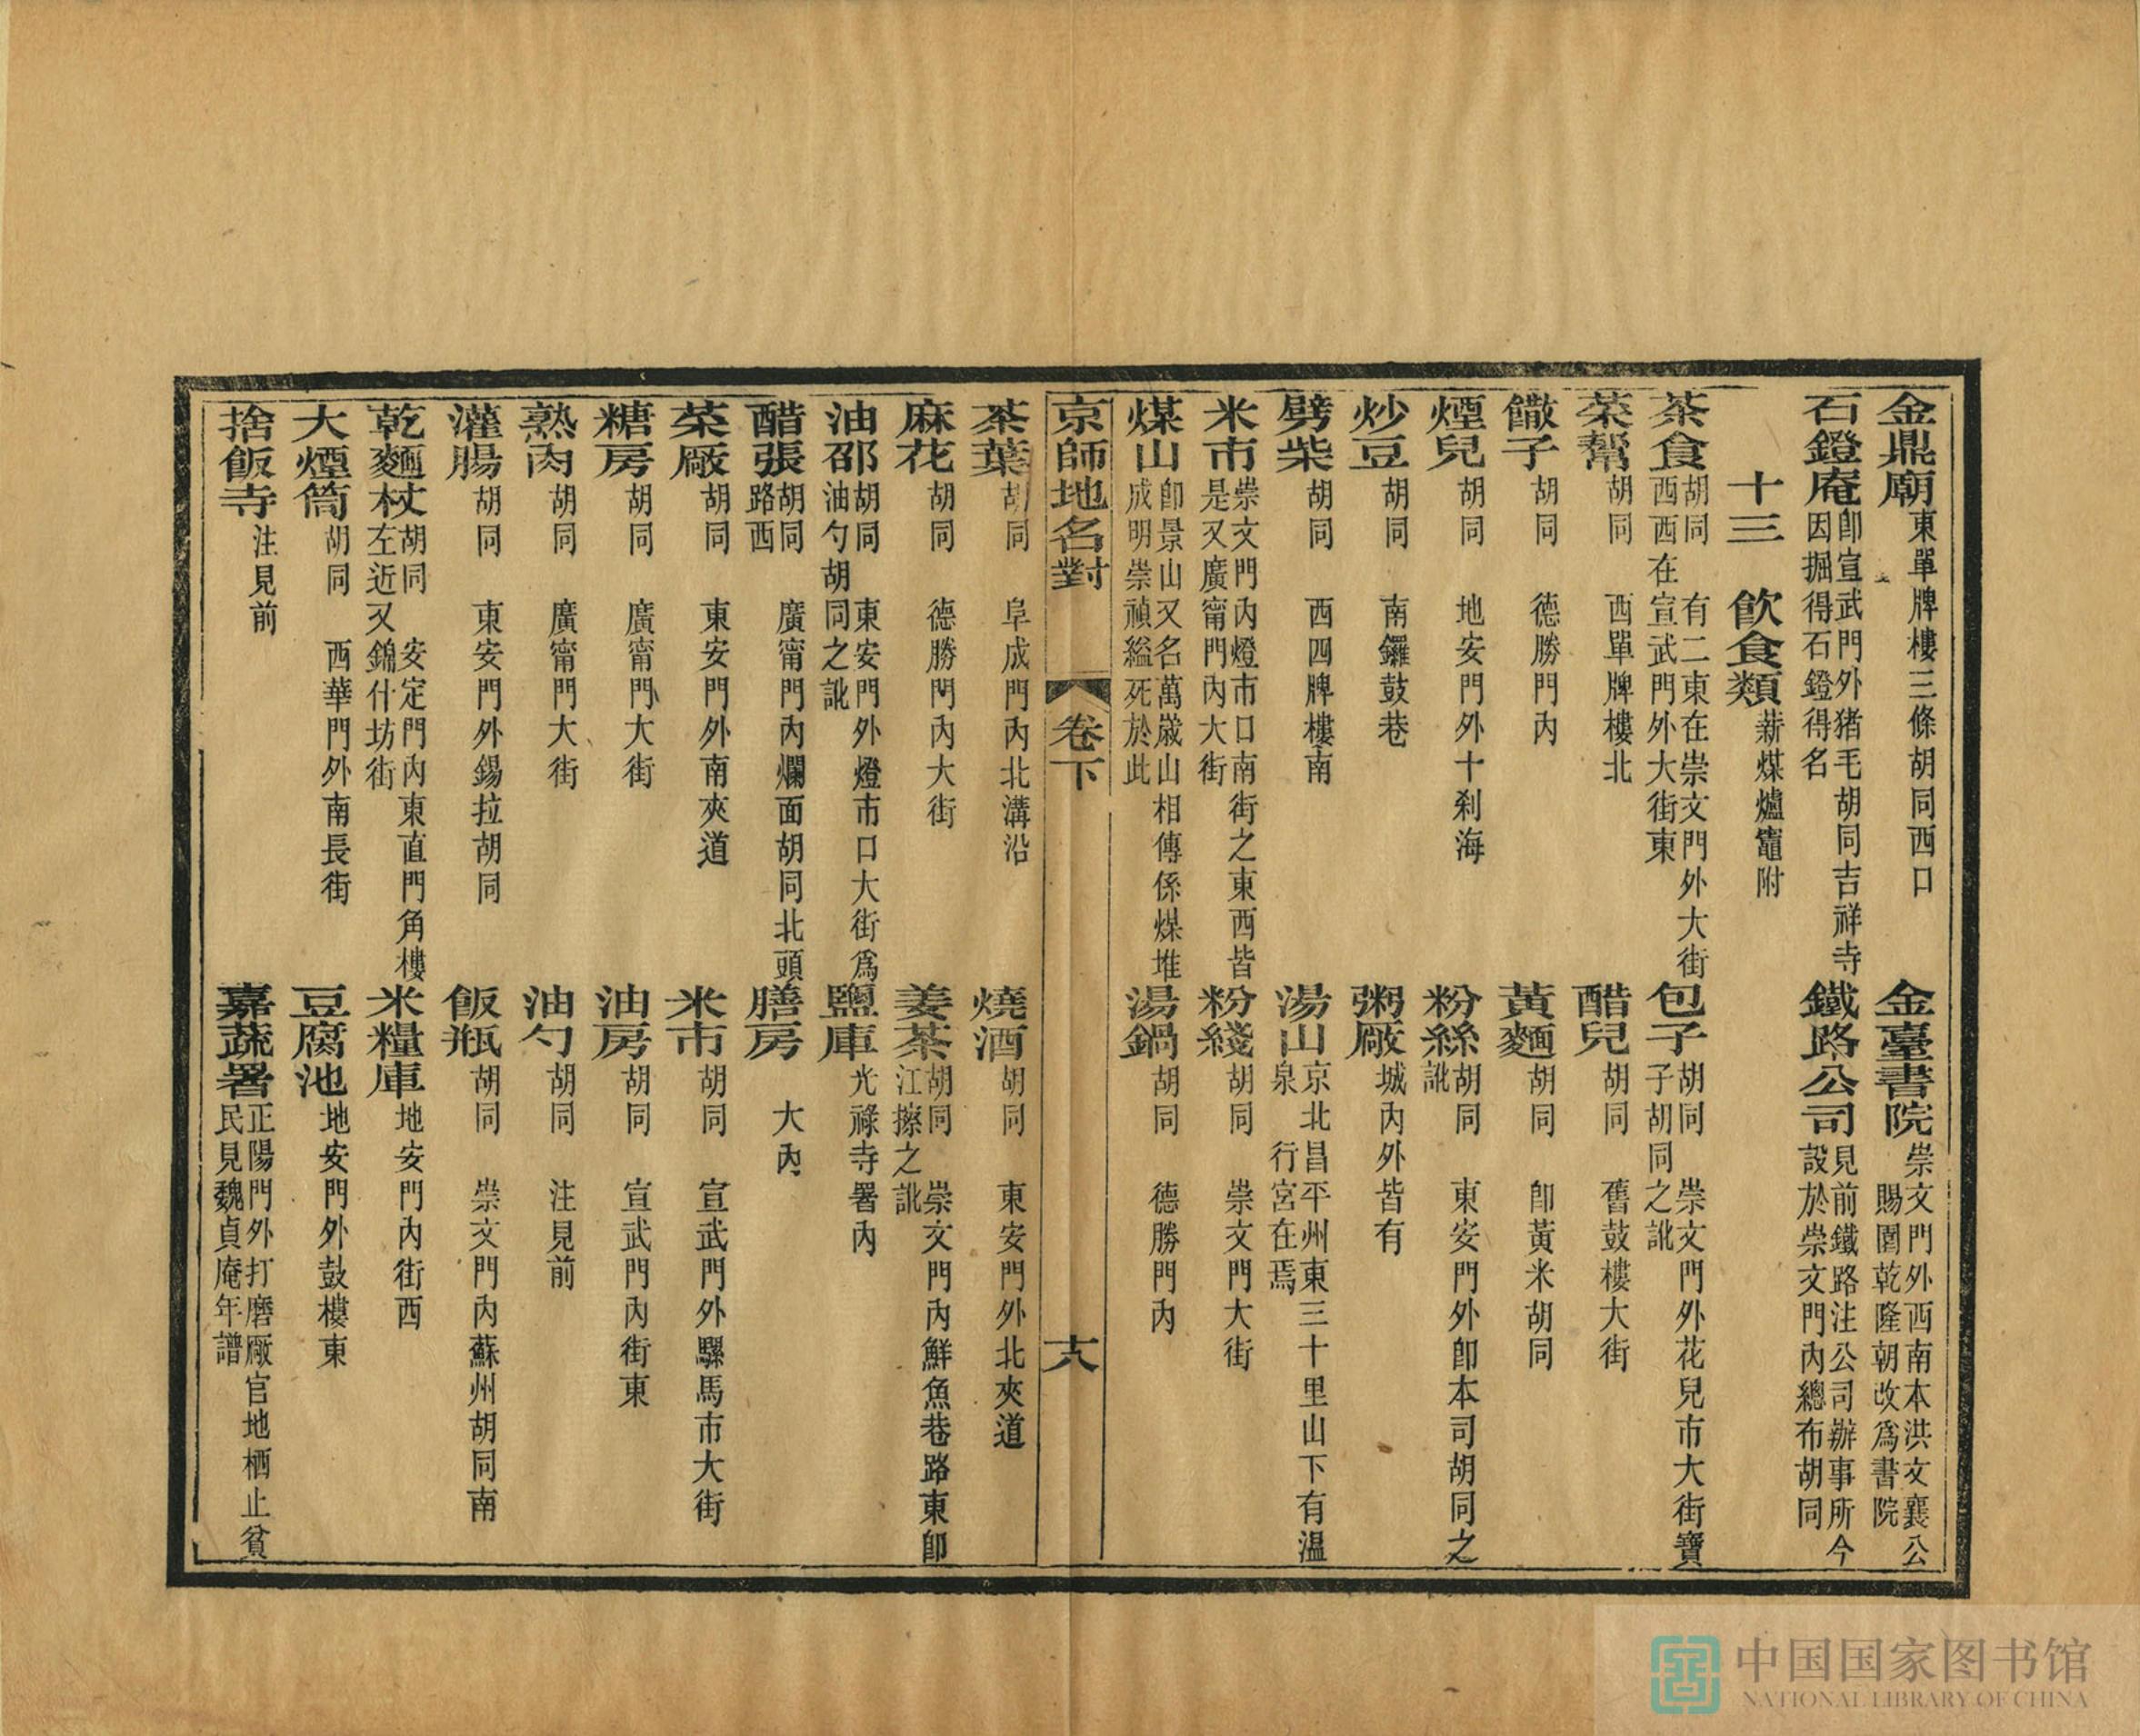 金鼎廟東單牌樓三條胡同西口　金臺書院崇文門外西南本洪文襄公賜園乾隆朝改爲書院
石鐙庵卽宣武門外猪毛胡同吉祥寺因掘得石鐙得名　鐵路公司見前鐵路注公司辦事所今設於崇文門內總布胡同
十三　飲食類薪煤爐竈附
茶食胡同　有二東在崇文門外大街西西在宣武門外大街東　包子胡同　崇文門外花兒市大街寶子胡同之訛
菜幫胡同　西單牌樓北　醋兒胡同　舊鼓樓大街
饊子胡同　德勝門內　黃麵胡同　卽黃米胡同
煙兒胡同　地安門外十刹海　粉絲胡同　東安門外卽本司胡同之訛
炒豆胡同　南鑼鼓巷　粥厰城內外皆有
劈柴胡同　西四牌樓南　湯山京北昌平州東三十里山下有溫泉　行宮在焉
米市崇文門內燈市口南街之東西皆是又廣甯門內大街　粉綫胡同　崇文門大街
煤山卽景山又名萬嵗山相傳係煤堆成明崇禎縊死於此　湯鍋胡同　德勝門內
京師地名對　卷下　十八
茶葉胡同　阜成門內北溝沿　燒酒胡同　東安門外北夾道
麻花胡同　德勝門內大街　姜茶胡同　崇文門內鮮魚巷路東卽江擦之訛
油邵胡同　東安門外燈市口大街爲油勺胡同之訛　鹽庫光祿寺署內
醋張胡同　廣甯門內爛面胡同北頭路西　膳房　大內
菜厰胡同　東安門外南夾道　米市胡同　宣武門外騾馬市大街
糖房胡同　廣甯門大街　油房胡同　宣武門內街東
熟肉胡同　廣甯門大街　油勺胡同　注見前
灌腸胡同　東安門外錫拉胡同　飯瓶胡同　崇文門內蘇州胡同南
乾麵杖胡同　安定門內東直門角樓左近又錦什坊街　米糧庫地安門內街西
大煙筒胡同　西華門外南長街　豆腐池地安門外鼓樓東
捨飯寺注見前　嘉蔬署正陽門外打磨厰官地栖止貧民見魏貞庵年譜
中国国家图书馆
NATIONAL LIBRARY OF CHINA